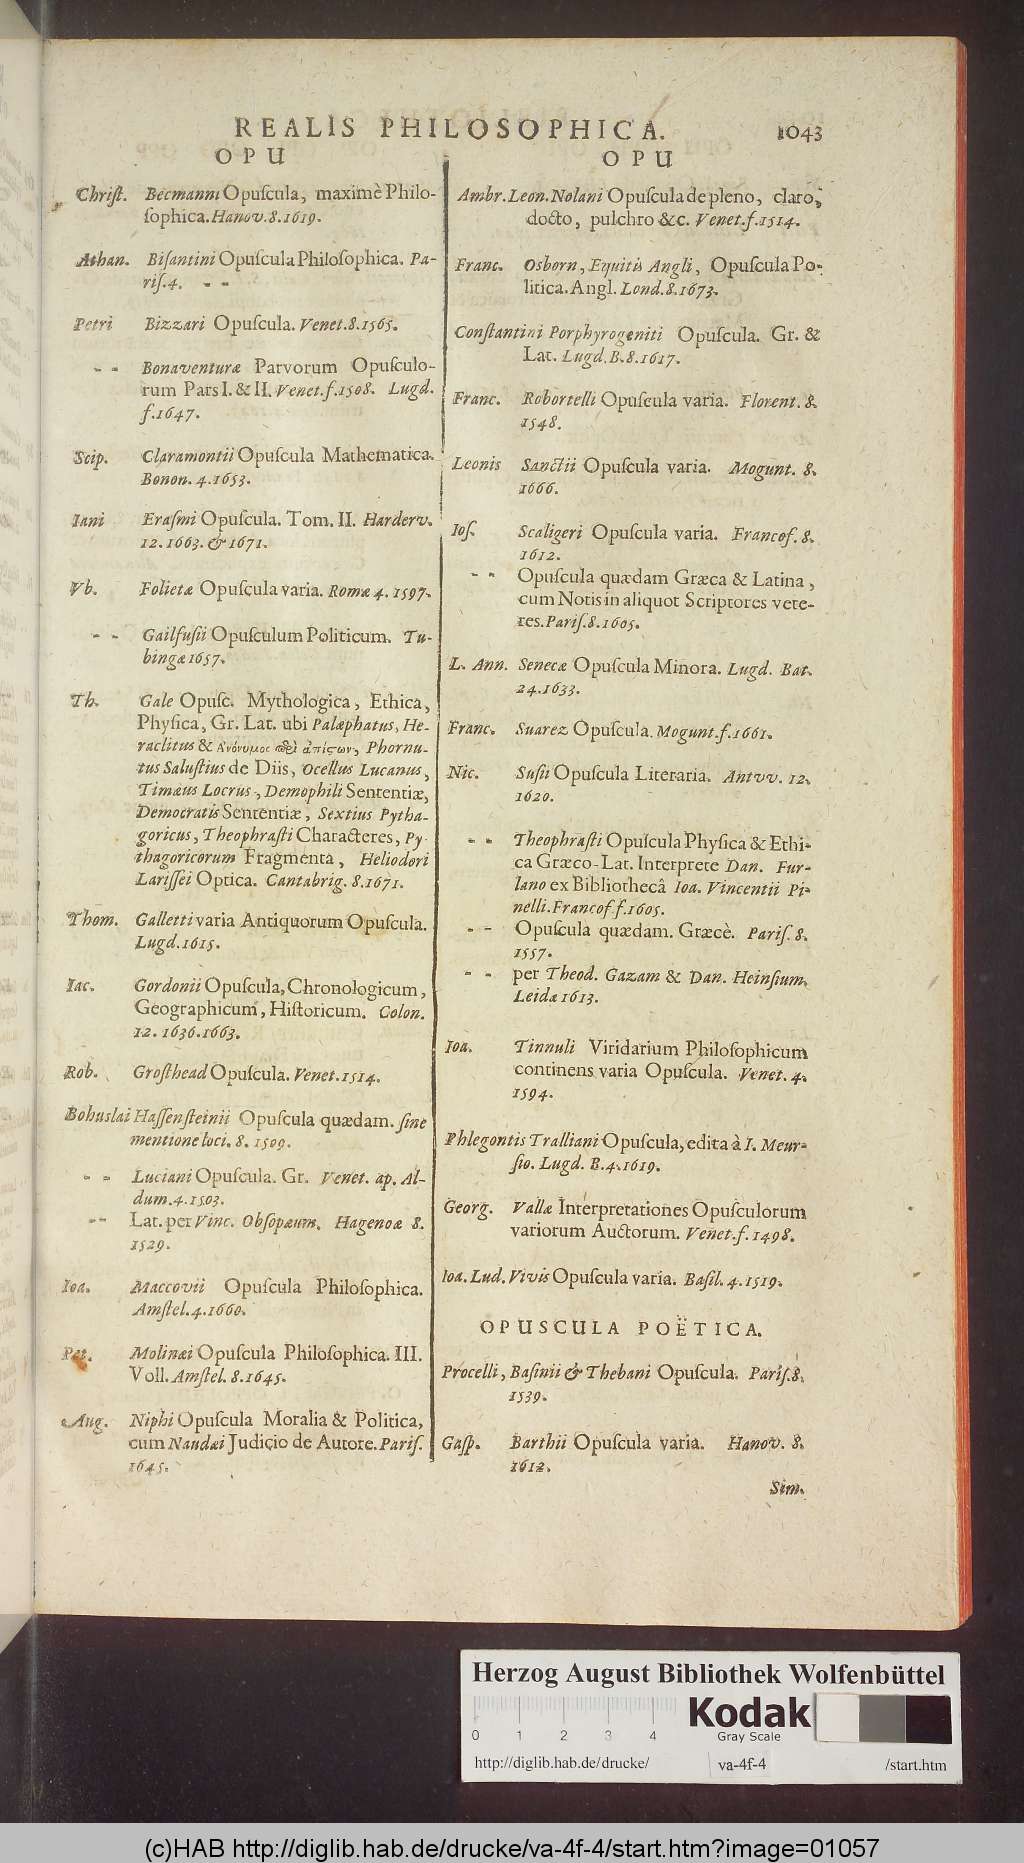 REALIS PHILOSOPHICA. 1043
OPU
Christ. Becmanni Opuscula, maximè Philo-
sophica. Hanov. 8. 1619.
Athan. Bisantini Opuscula Philosophica. Pa-
ris. 4. - -
Petri Bizzari Opuscula. Venet. 8. 1565.
- - Bonaventuræ Parvorum Opusculo-
rum Pars I. & II. Venet. f. 1508. Lugd.
f. 1647.
Scip. Claramontii Opuscula Mathematica.
Bonon. 4. 1653.
Iani Erasmi Opuscula. Tom. II. Harderv.
12. 1663. & 1671.
Vb. Folietæ Opuscula varia. Romæ 4. 1597.
- - Gailfusii Opusculum Politicum. Tu-
bingæ 1657.
Th. Gale Opusc. Mythologica, Ethica,
Physica, Gr. Lat. ubi Palæphatus, He-
raclitus & Ἀνόνυμος περὶ ἀπίστων, Phornu-
tus Salustius de Diis, Ocellus Lucanus,
Timæus Locrus, Demophili Sententiæ,
Democratis Sententiæ, Sextius Pytha-
goricus, Theophrasti Characteres, Py-
thagoricorum Fragmenta, Heliodori
Larissei Optica. Cantabrig. 8. 1671.
Thom. Galletti varia Antiquorum Opuscula.
Lugd. 1615.
Iac. Gordonii Opuscula, Chronologicum,
Geographicum, Historicum. Colon.
12. 1636. 1663.
Rob. Grosthead Opuscula. Venet. 1514.
Bohuslai Hassensteinii Opuscula quædam. sine
mentione loci. 8. 1509.
- - Luciani Opuscula. Gr. Venet. ap. Al-
dum. 4. 1503.
- - Lat. per Vinc. Obsopæum. Hagenoæ 8.
1529.
Ioa. Maccovii Opuscula Philosophica.
Amstel. 4. 1660.
Pet. Molinæi Opuscula Philosophica. III.
Voll. Amstel. 8. 1645.
Aug. Niphi Opuscula Moralia & Politica,
cum Naudæi Judicio de Autore. Paris.
1645.
OPU
Ambr. Leon. Nolani Opuscula de pleno, claro,
docto, pulchro &c. Venet. f. 1514.
Franc. Osborn, Equitis Angli, Opuscula Po-
litica. Angl. Lond. 8. 1673.
Constantini Porphyrogeniti Opuscula. Gr. &
Lat. Lugd. B. 8. 1617.
Franc. Robortelli Opuscula varia. Florent. 8.
1548.
Leonis Sanctii Opuscula varia. Mogunt. 8.
1666.
Ios. Scaligeri Opuscula varia. Francof. 8.
1612.
- - Opuscula quædam Græca & Latina,
cum Notis in aliquot Scriptores vete-
res. Paris. 8. 1605.
L. Ann. Senecæ Opuscula Minora. Lugd. Bat.
24. 1633.
Franc. Suarez Opuscula. Mogunt. f. 1661.
Nic. Susii Opuscula Literaria. Antvv. 12.
1620.
- - Theophrasti Opuscula Physica & Ethi-
ca Græco-Lat. Interprete Dan. Fur-
lano ex Bibliothecâ Ioa. Vincentii Pi-
nelli. Francof f. 1605.
- - Opuscula quædam. Græcè. Paris. 8.
1557.
- - per Theod. Gazam & Dan. Heinsium.
Leidæ 1613.
Ioa. Tinnuli Viridarium Philosophicum
continens varia Opuscula. Venet. 4.
1594.
Phlegontis Tralliani Opuscula, edita à I. Meur-
sio. Lugd. B. 4. 1619.
Georg. Vallæ Interpretationes Opusculorum
variorum Auctorum. Venet. f. 1498.
Ioa. Lud. Vivis Opuscula varia. Basil. 4. 1519.
OPUSCULA POËTICA.
Procelli, Basinii & Thebani Opuscula. Paris. 8.
1539.
Gasp. Barthii Opuscula varia. Hanov. 8.
1612.
Sim.
Herzog August Bibliothek Wolfenbüttel
0 1 2 3 4
Kodak
Gray Scale
http://diglib.hab.de/drucke/ va-4f-4 /start.htm
(c)HAB http://diglib.hab.de/drucke/va-4f-4/start.htm?image=01057